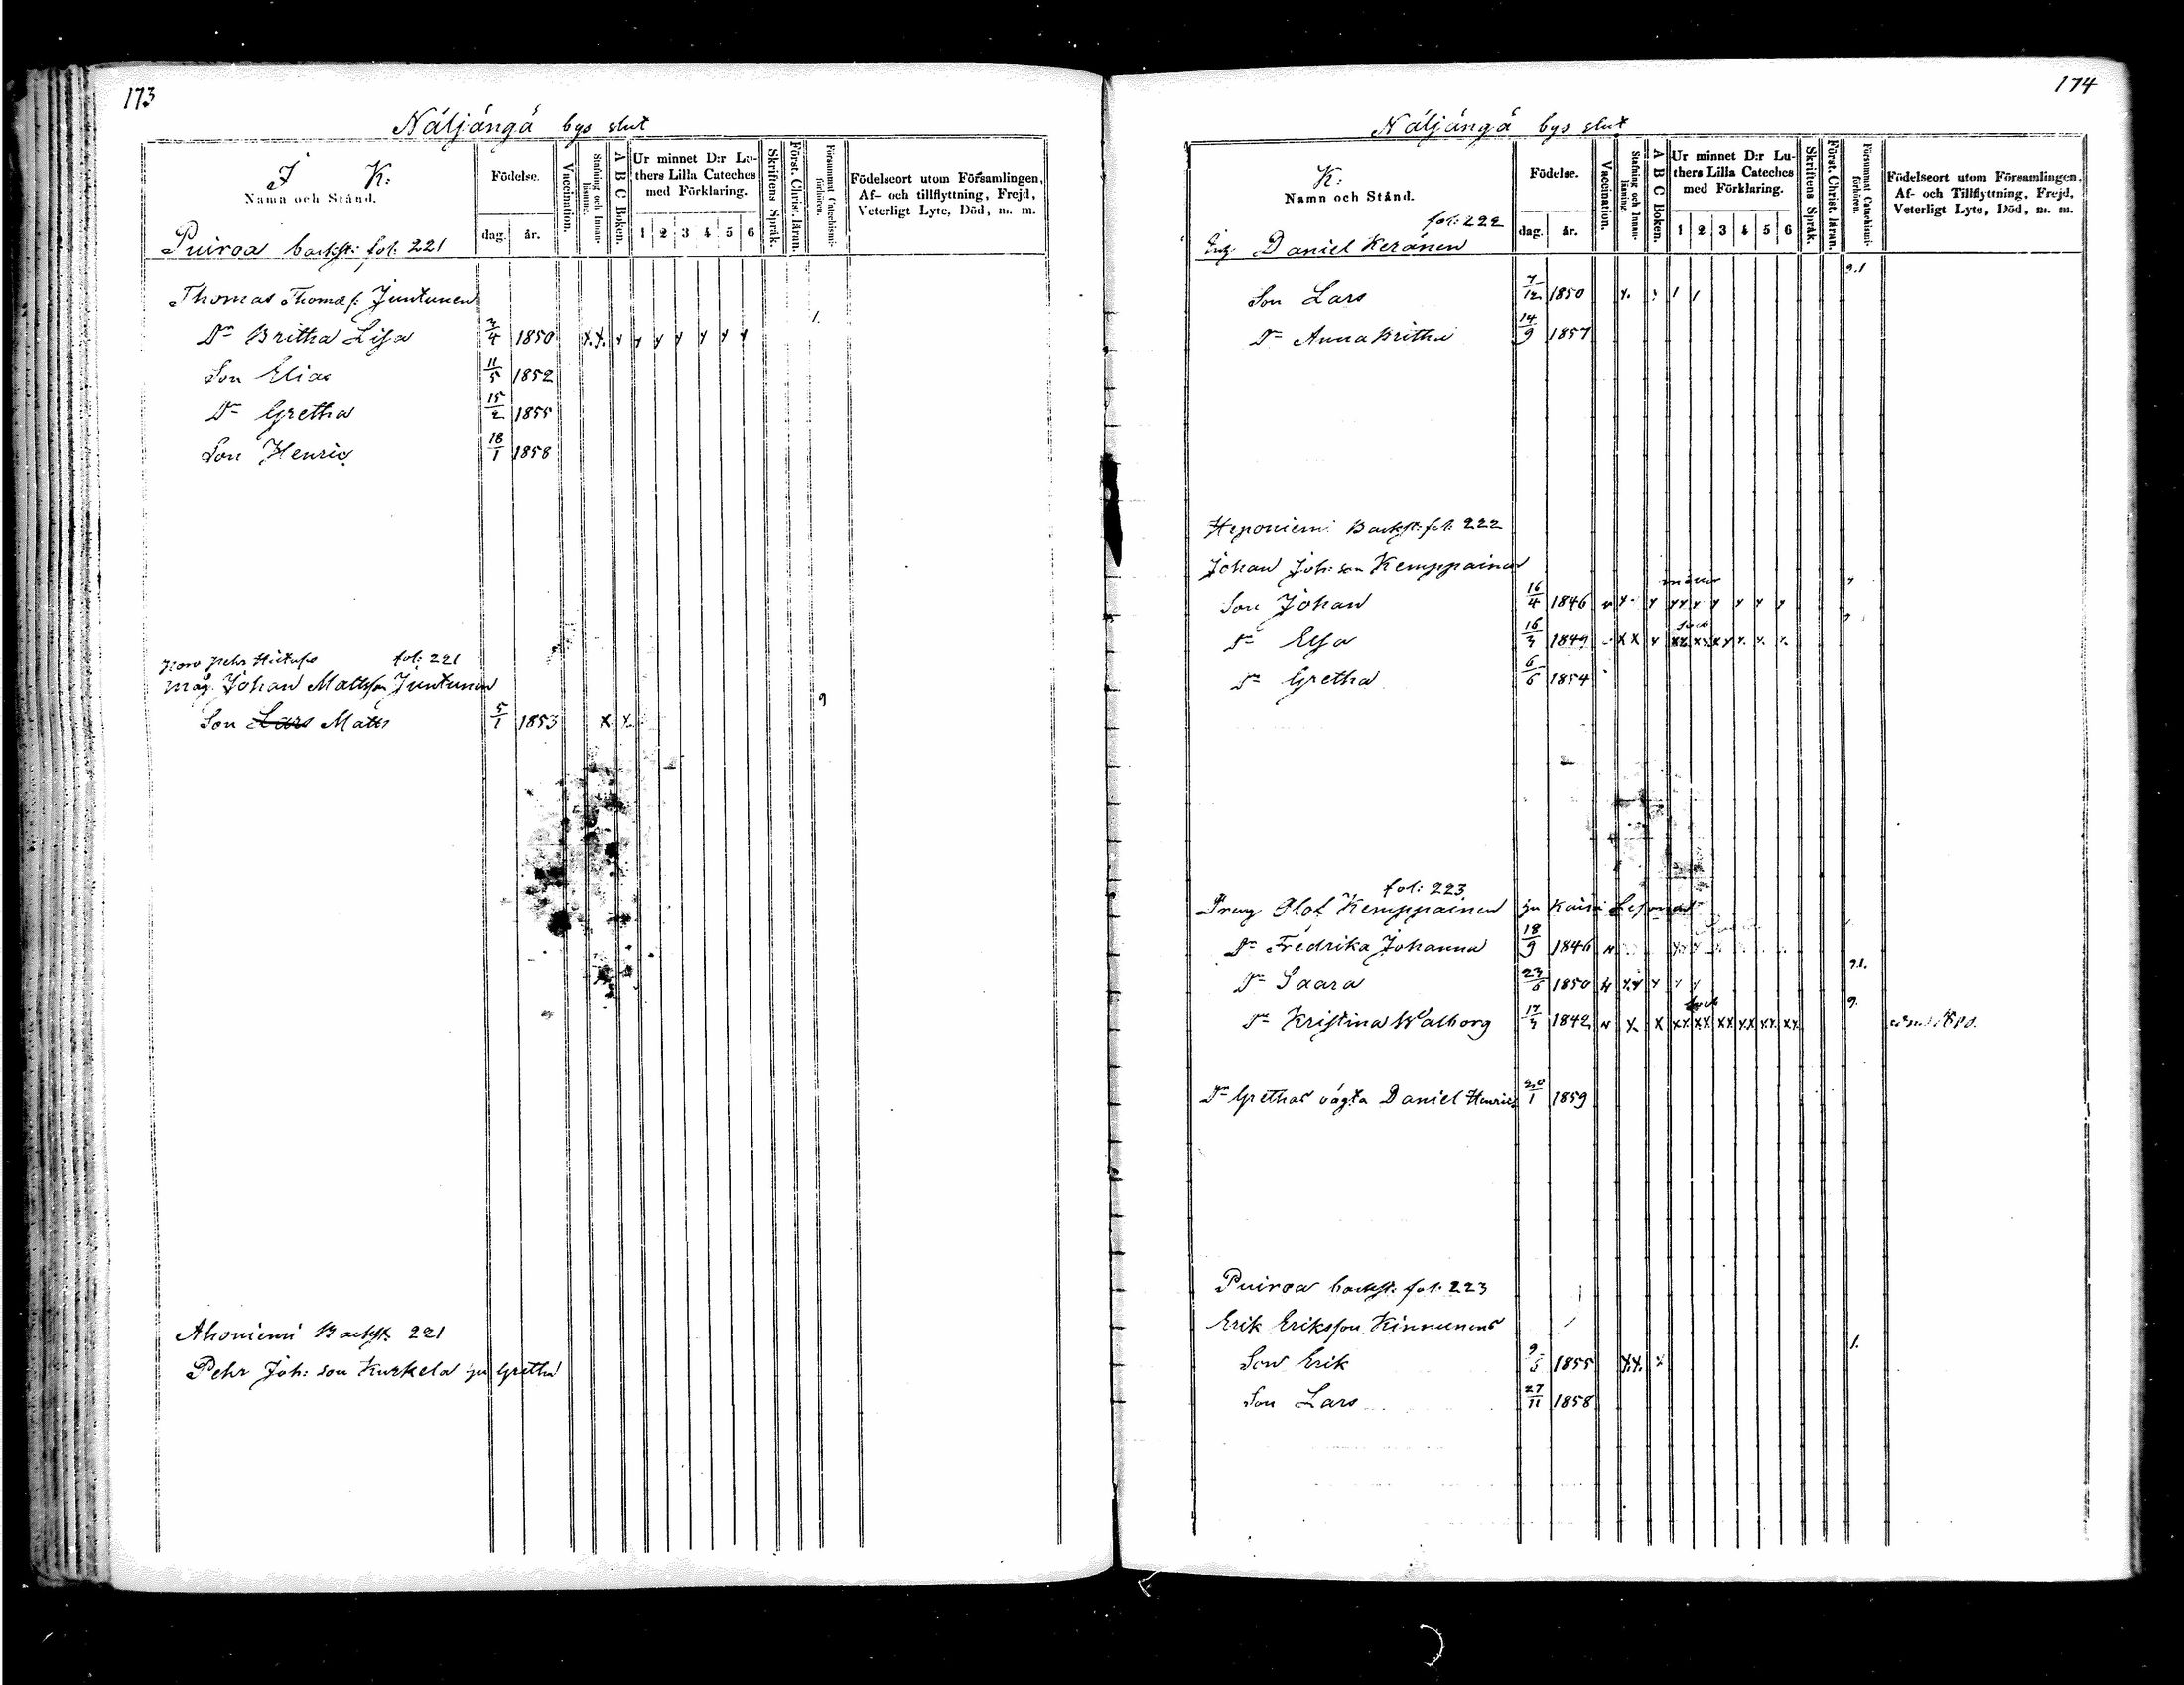 173
Näljängä bys slut
J K:
Namn och Stånd.
Födelse.
dag. år.
Vaccination.
Stafning och Innan-läsning.
A B C Boken.
Ur minnet D:r Lu-
thers Lilla Cateches
med Förklaring.
1 2 3 4 5 6
Skriftens Språk.
Först. Christ. läran.
Försummat Catechismi-förhören.
Födelseort utom Församlingen,
Af- och tillflyttning, Frejd,
Veterligt Lyte, Död, m. m.
Puiroa backst: fol: 221
Thomas Thomæ f: Juntunen
Dr Britha Lisa 3/4 1850 x.x. y y y y y y y 1.
Son Elias 11/5 1852
Dr Gretha 15/2 1855
Son Henric 18/1 1858
fol: 221
måg Johan Mattsson Juntunen
Son Lars Matts 5/1 1853 x x. 9
Ahoniemi Backst. 221
Pehr Joh: son Kurkela ju Gretha
174
Näljängä bys slut
K:
Namn och Stånd.
Födelse.
dag. år.
Vaccination.
Stafning och Innan-läsning.
A B C Boken.
Ur minnet D:r Lu-
thers Lilla Cateches
med Förklaring.
1 2 3 4 5 6
Skriftens Språk.
Först. Christ. läran.
Försummat Catechismi-förhören.
Födelseort utom Församlingen,
Af- och Tillflyttning, Frejd,
Veterligt Lyte, Död, m. m.
fol: 222
Daniel Keränen
9.1
Son Lars 7/12 1850
Dr Anna Britha 14/9 1857
Heponiemi Backst: fol: 222
Johan Joh: son Kemppainen
Son Johan 16/4 1846
Dr Elsa 16/3 1849
Dr Gretha 6/6 1854
fol: 223
Dreng Olof Kemppainen ju Kaisa
Dr Fredrika Johanna 18/9 1846
Dr Saara 23/6 1850 9.1.
Dr Kristina Walborg 17/3 1842 x. x xx xx xx xx xx xx 9.
Dr Grethas oägta Daniel Henric 20/1 1859
Puiroa backst: fol: 223
Erik Eriksson Kinnunens
Son Erik 9/5 1855 x.x. x 1.
Son Lars 27/11 1858